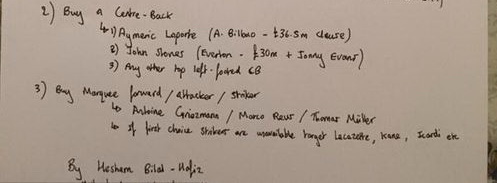 2) Buy a Centre-Back
↳ 1) Aymeric Laporte (A. Bilbao - £36.5m clause)
2) John Stones (Everton - £30m + Jonny Evans)
3) Any other top left-footed CB
3) Buy Marquee forward / attacker / striker
↳ Antoine Griezmann / Marco Reus / Thomas Müller
↳ If first choice strikers are unavailable target Lacazette, Kane, Icardi etc
By Hesham Bilal-Hafiz